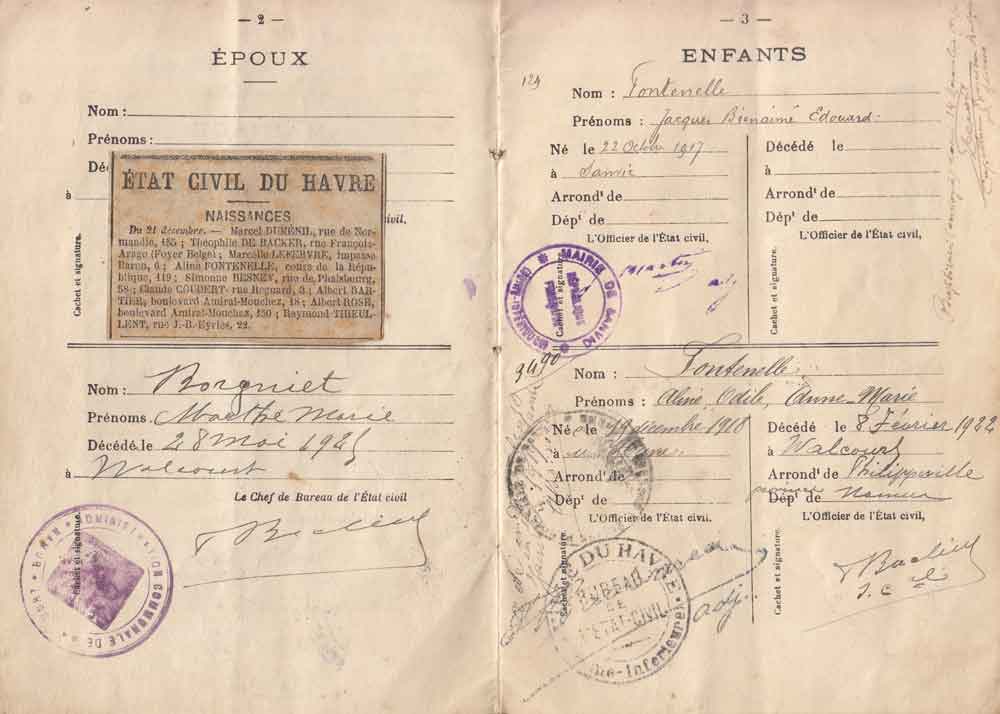 — 2 —
ÉPOUX
Nom :
Prénoms :
Dé
à
civil,
Cachet et signature.
ÉTAT CIVIL DU HAVRE
NAISSANCES
Du 21 décembre. — Marcel DUMÉNIL, rue de Nor-
mandie, 185 ; Théophile DE BACKER, rue François-
Arago (Foyer Belge) ; Marcelle LEFEBVRE, impasse
Baron, 6 ; Aline FONTENELLE, cours de la Répu-
blique, 119 ; Simonne rue de Phalsbourg,
58 ; Claude COUDERT, rue Regnard, 3 ; Albert BAR-
TIER, boulevard Amiral-Mouchez, 18 ; Albert ROSE,
boulevard Amiral-Mouchez, 150 ; Raymond
LENT, rue J.-B.-Eyriès, 22.
Nom : Borgniet
Prénoms Marthe Marie
Décédé le 28 Mai
à Walcourt
Le Chef de Bureau de l'État civil
Cachet et signature.
ADMINISTRATION COMMUNALE DE
— 3 —
ENFANTS
124
Nom : Fontenelle
Prénoms : Jacques Bienaimé Edouard
Né le 22 Octobre 1917
à Sanvic
Arrondt de
Dépt de
L'Officier de l'État civil,
Cachet et signature.
MAIRIE DE SANVIC
adj
Décédé le
à
Arrondt de
Dépt de
L'Officier de l'État civil,
Cachet et signature.
3490
Nom : Fontenelle
Prénoms : Aline, Odile, Anne-Marie
Né le 19 décembre 1918
à
Arrondt de
Dépt de
L'Officier de l'État civil,
Cachet et signature.
DU HAVRE
BUREAU
DE
L'ÉTAT-CIVIL
Inférieure
adj.
Décédé le 8 Février 1922
à Walcourt
Arrondt de Philippeville
province
Dépt de Namur
L'Officier de l'État civil,
Cachet et signature.